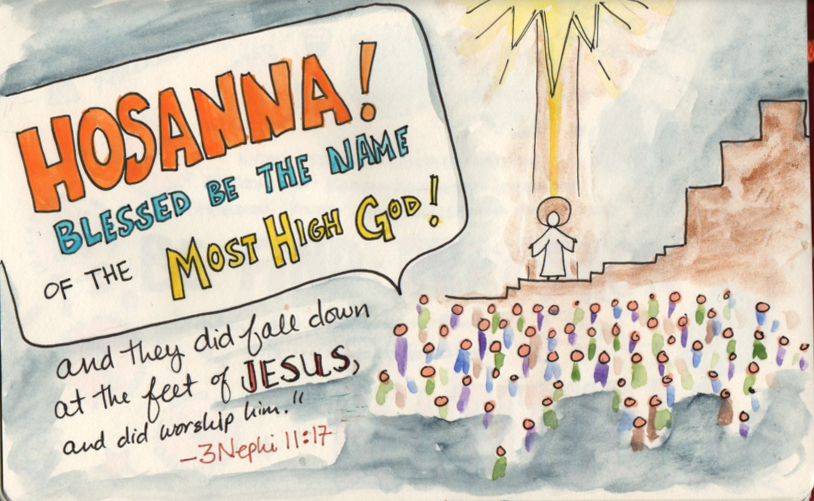 HOSANNA!
BLESSED BE THE NAME
OF THE MOST HIGH GOD!
and they did fall down
at the feet of JESUS,
and did worship him."
—3 Nephi 11:17